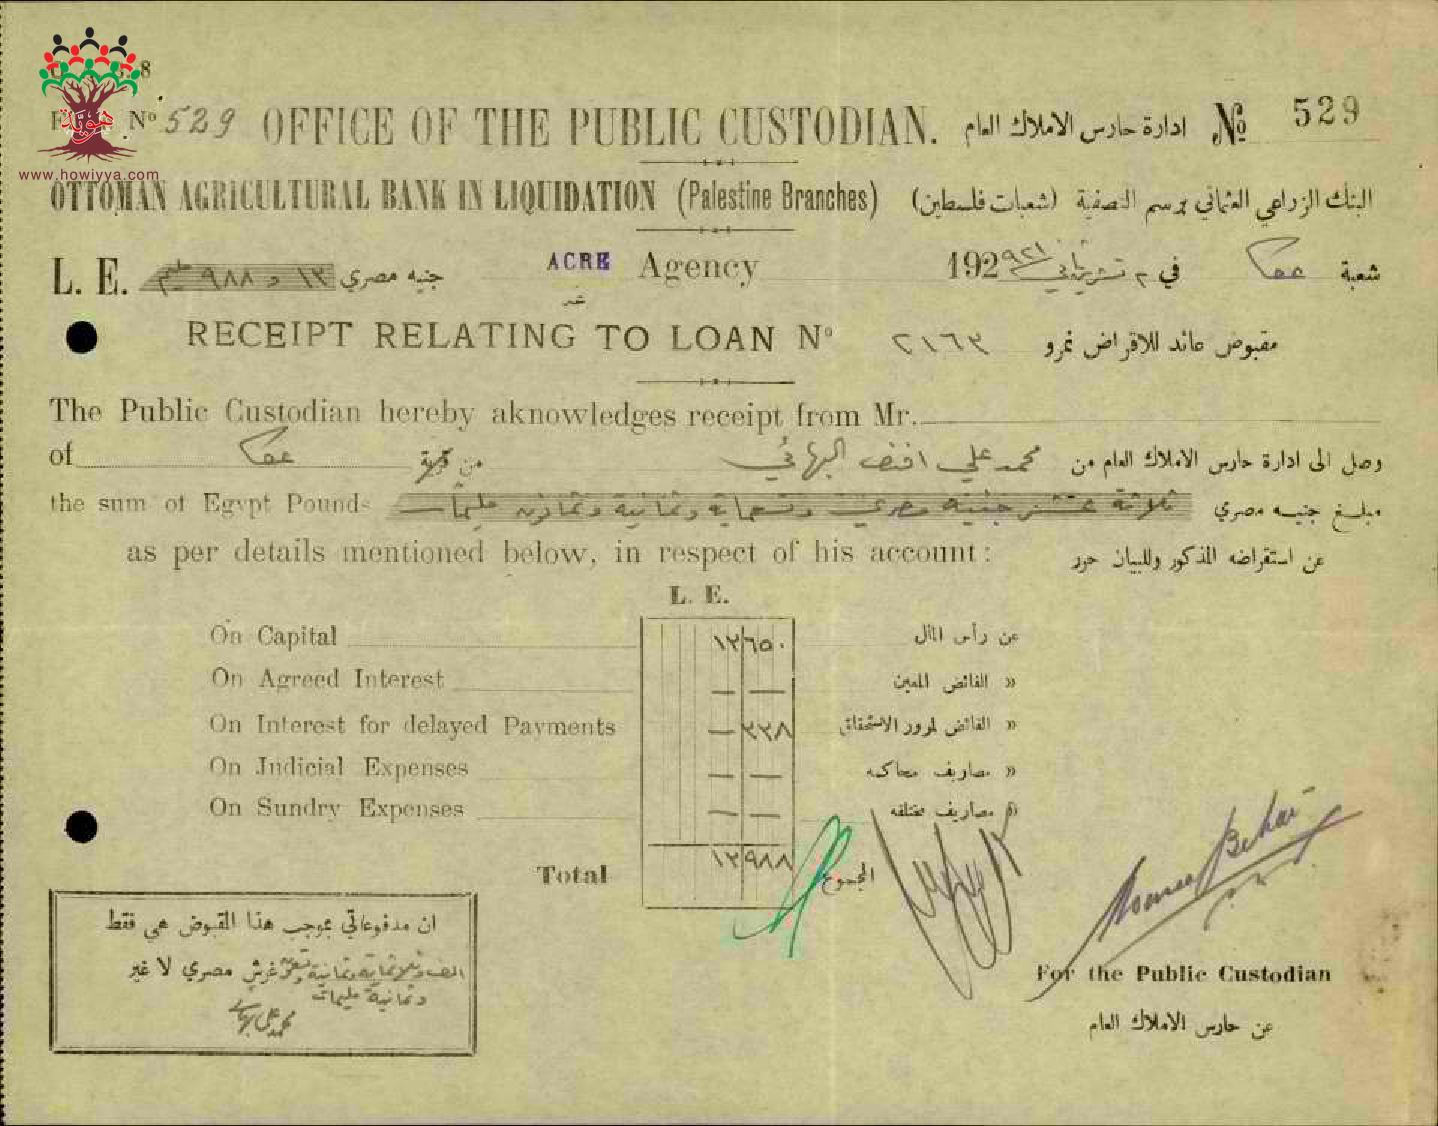 هوية
www.howiyya.com
8
Nº 529 OFFICE OF THE PUBLIC CUSTODIAN. ادارة حارس الاملاك العام Nº 529
OTTOMAN AGRICULTURAL BANK IN LIQUIDATION (Palestine Branches) البنك الزراعي العثماني برسم التصفية (شعبات فلسطين)
L. E. ١٣ و ٩٨٨ مليم جنيه مصري ACRE Agency 192 ٩٢١ في ٢ تشرين ثاني شعبة عكا
RECEIPT RELATING TO LOAN Nº ٢١٦٣ مقبوض عائد للاقراض نمرو
The Public Custodian hereby aknowledges receipt from Mr.
of عكا من قرية محمد علي افندي البهائي وصل الى ادارة حارس الاملاك العام من
the sum of Egypt Pounds ثلاثة عشر جنيه مصري وتسعماية وثمانية وثمانون مليمات مبلغ جنيه مصري
as per details mentioned below, in respect of his account : عن استقراضه المذكور وللبيان حرر
L. E.
On Capital ١٣ ٦٥٠ عن رأس المال
On Agreed Interest — — » الفائض المعين
On Interest for delayed Payments — ٣٣٨ » الفائض لمرور الاستحقاق
On Judicial Expenses — — » مصاريف محاكمه
On Sundry Expenses — — » مصاريف مختلفه
Total ١٣ ٩٨٨ المجموع
ان مدفوعاتي بموجب هذا المقبوض هي فقط
الف وثلاثماية وثمانية وتسعون غرش مصري لا غير
وثمانية مليمات
محمد علي البهائي
For the Public Custodian
عن حارس الاملاك العام